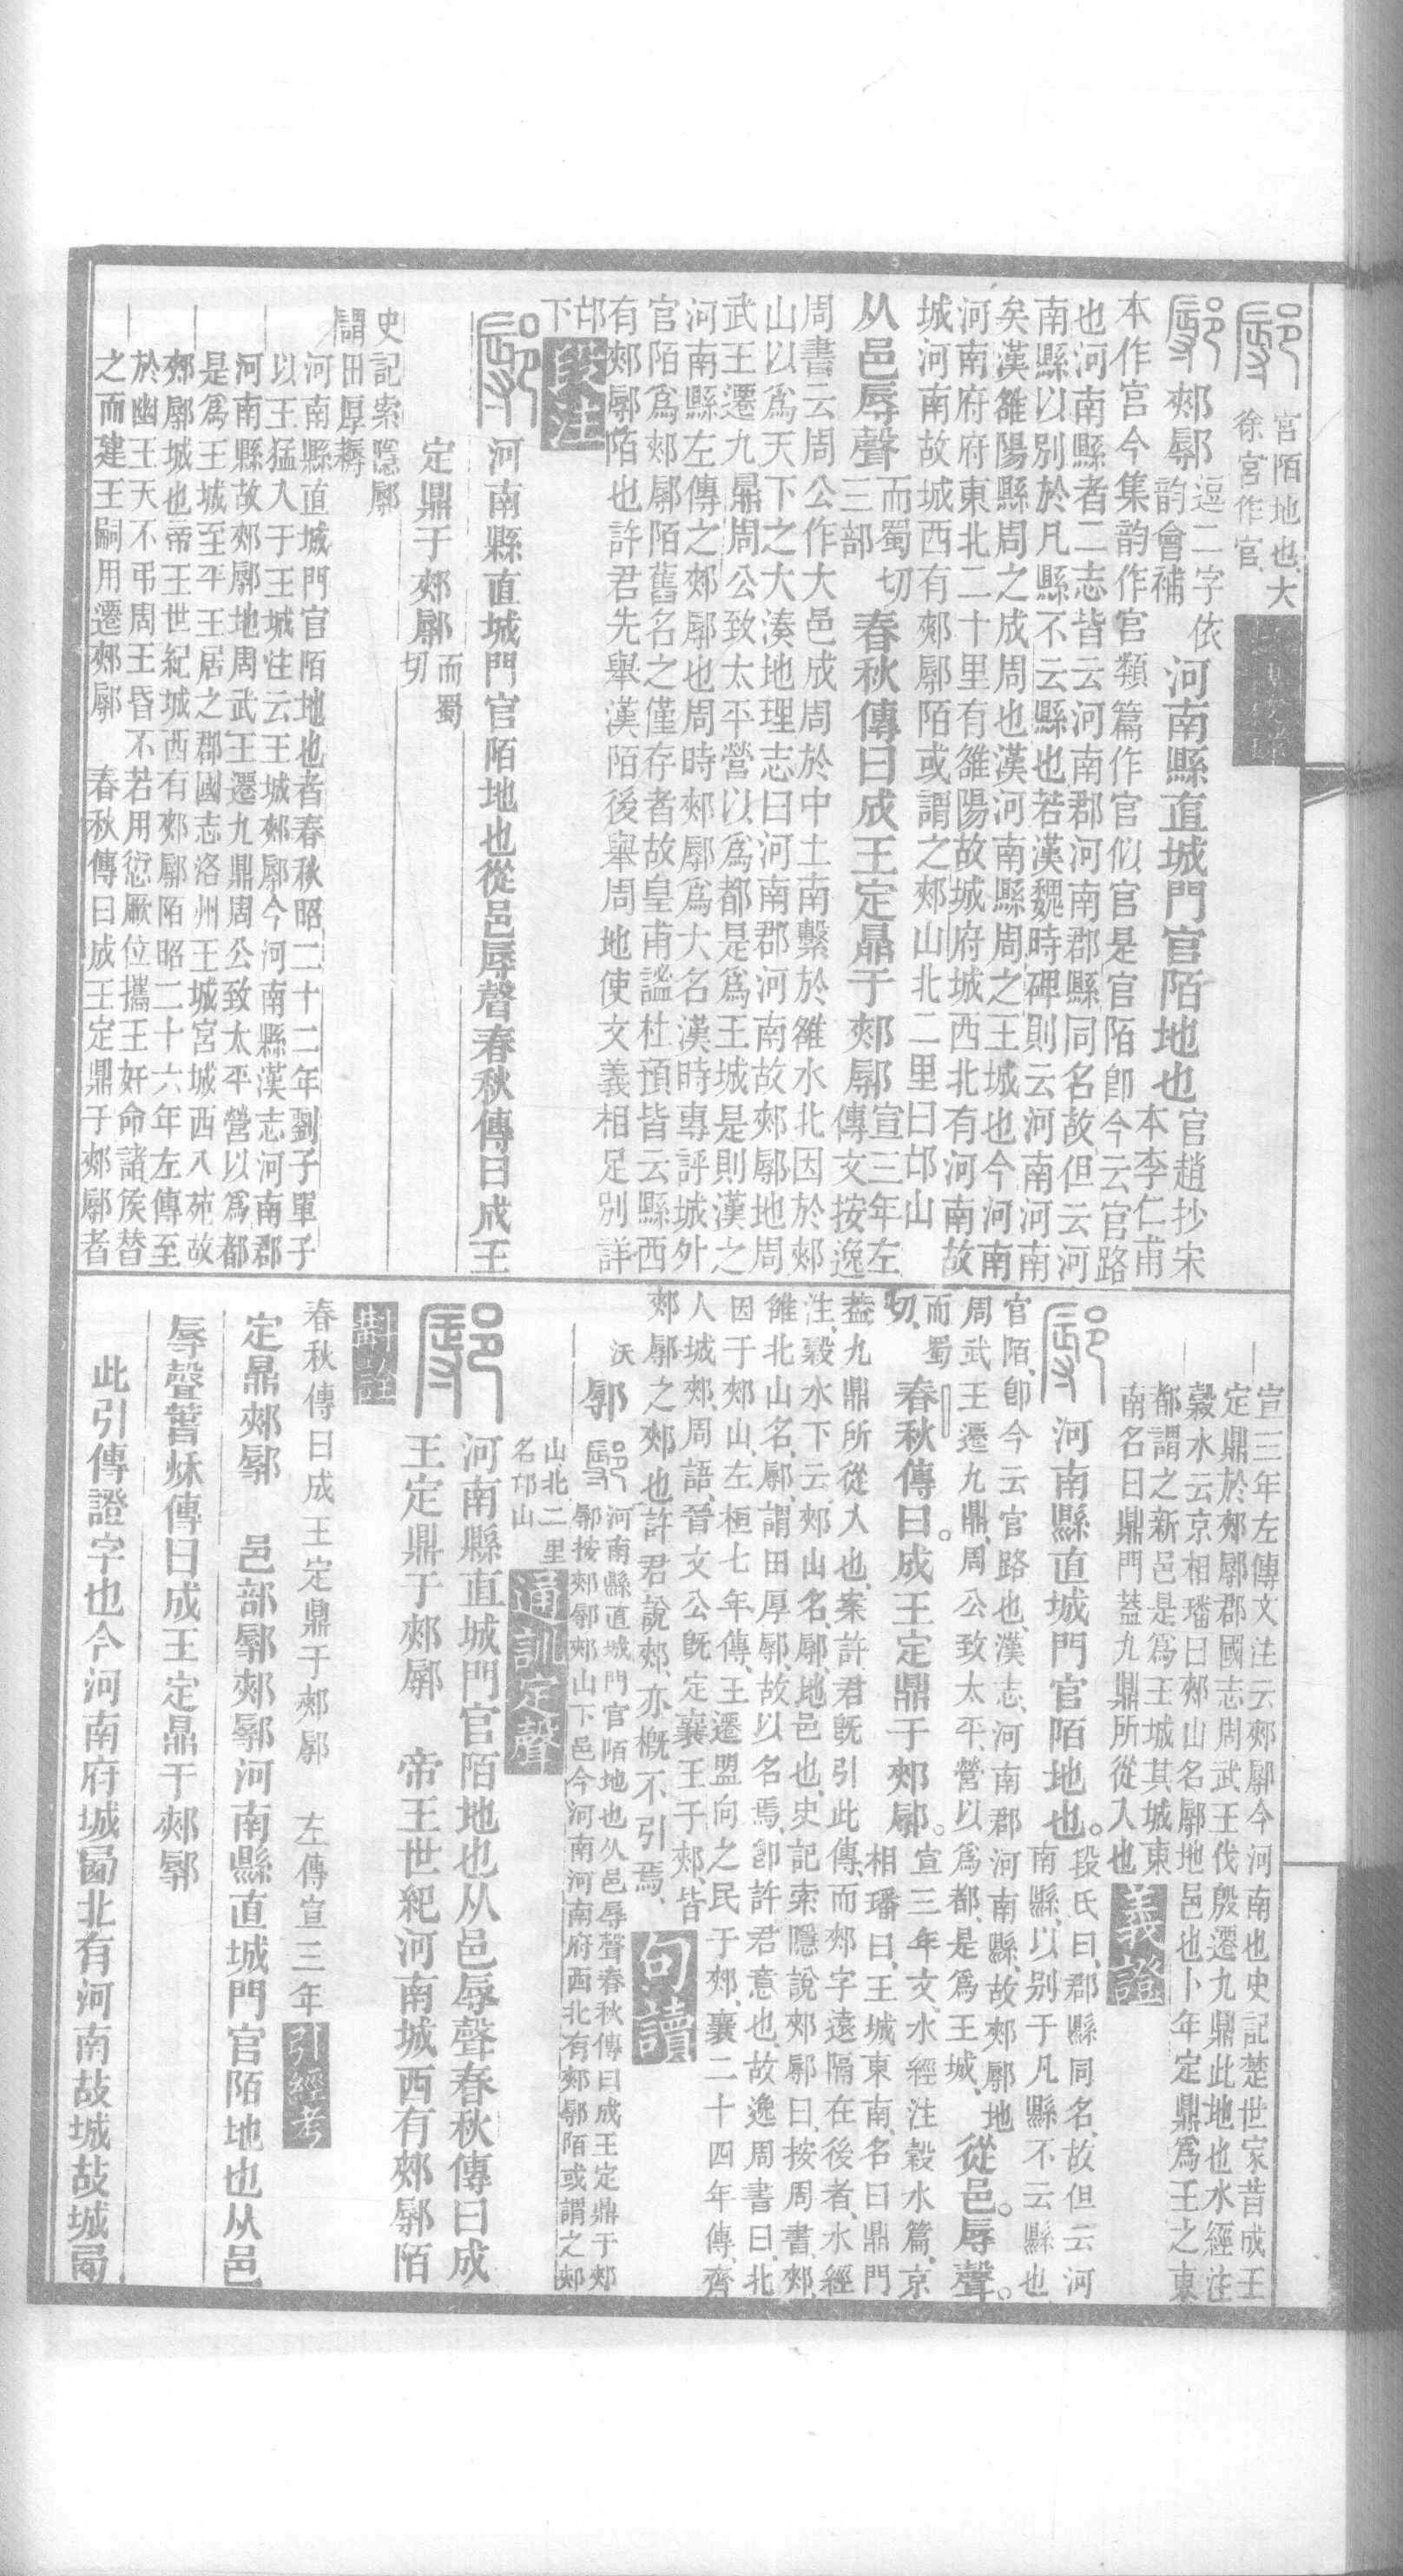 宮陌地也大
徐宮作官
郟鄏逗二字依韵會補河南縣直城門官陌地也官趙抄宋本李仁甫
本作宮今集韵作宮類篇作官似官是官陌卽今云官路
也河南縣者二志皆云河南郡河南郡縣同名故但云河
南縣以別於凡縣不云縣也若漢魏時碑則云河南河南
矣漢雒陽縣周之成周也漢河南縣周之王城也今河南
河南府府東北二十里有雒陽故城府城西北有河南故
城河南故城西有郟鄏陌或謂之郟山北二里曰邙山
从邑辱聲而蜀切三部春秋傳曰成王定鼎于郟鄏宣三年左傳文按逸
周書云周公作大邑成周於中土南繫於雒水北因於郟
山以爲天下之大湊地理志曰河南郡河南故郟鄏地周
武王遷九鼎周公致太平營以爲都是爲王城是則漢之
河南縣左傳之郟鄏也周時郟鄏爲大名漢時專評城外
官陌爲郟鄏陌舊名之僅存者故皇甫謐杜預皆云縣西
有郟鄏陌也許君先舉漢陌後舉周地使文義相足別詳
邙下
段注
河南縣直城門官陌地也從邑辱聲春秋傳曰成王
定鼎于郟鄏而蜀切
史記索隱鄏
謂田厚鄏
河南縣直城門官陌地也者春秋昭二十二年劉子單子
以王猛入于王城注云王城郟鄏今河南縣漢志河南郡
河南縣故郟鄏地周武王遷九鼎周公致太平營以爲都
是爲王城至平王居之郡國志洛州王城宮城西入苑故
郟鄏城也帝王世紀城西有郟鄏陌昭二十六年左傳至
於幽王天不弔周王昏不若用愆厥位攜王奸命諸侯替
之而建王嗣用遷郟鄏　春秋傳曰成王定鼎于郟鄏者
宣三年左傳文注云郟鄏今河南也史記楚世家昔成王
定鼎於郟鄏郡國志周武王伐殷遷九鼎此地也水經注
穀水云京相璠曰郟山名鄏地邑也卜年定鼎爲王之東
都謂之新邑是爲王城其城東
南名曰鼎門蓋九鼎所從入也
義證
河南縣直城門官陌地也。段氏曰、郡縣同名、故但云河南縣、以別于凡縣不云縣也
官陌、卽今云官路也、漢志、河南郡河南縣、故郟鄏地
周武王遷九鼎、周公致太平、營以爲都、是爲王城、從邑。辱聲。
而蜀切、春秋傳曰。成王定鼎于郟鄏。宣三年文、水經注穀水篇、京相璠曰、王城東南、名曰鼎門
蓋九鼎所從入也、案許君旣引此傳、而郟字遠隔在後者、水經
注、穀水下云、郟山名、鄏、地邑也、史記索隱說郟鄏曰、按周書、郟、
雒北山名、鄏、謂田厚鄏、故以名焉、卽許君意也、故逸周書曰、北
因于郟山、左桓七年傳、王遷盟向之民于郟、襄二十四年傳、齊
人城郟、周語、晉文公旣定襄王于郟、皆
郟鄏之郟也、許君說郟、亦槪不引焉、
句讀
沃
鄏
河南縣直城門官陌地也从邑辱聲春秋傳曰成王定鼎于郟
鄏按郟鄏郟山下邑今河南河南府西北有郟鄏陌或謂之郟
山北二里
名邙山
通訓定聲
河南縣直城門官陌地也从邑辱聲春秋傳曰成
王定鼎于郟鄏　帝王世紀河南城西有郟鄏陌
斠詮
春秋傳曰成王定鼎于郟鄏　左傳宣三年
引經考
定鼎郟鄏　邑部鄏郟鄏河南縣直城門官陌地也从邑
辱聲萅秌傳曰成王定鼎于郟鄏
此引傳證字也今河南府城㢴北有河南故城故城㢴